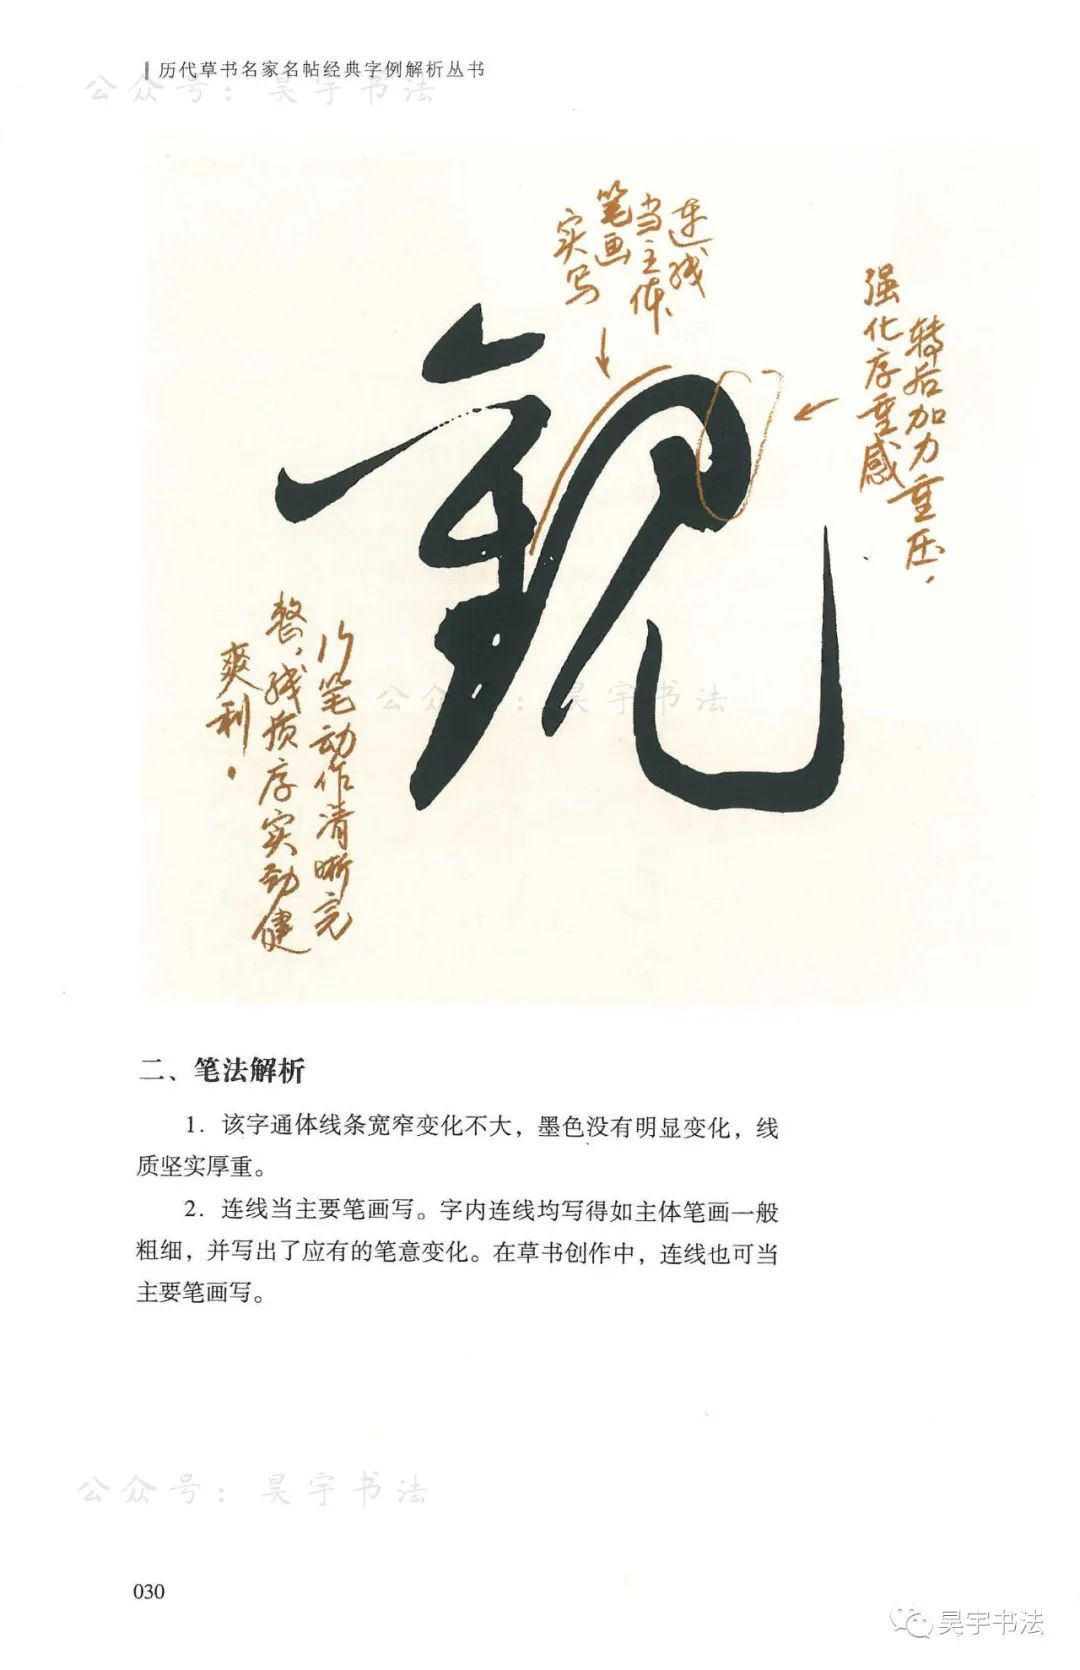 历代草书名家名帖经典字例解析丛书
公众号：昊宇书法
连线
当主体
笔画
实写
转后加力重压，
强化厚重感
观
行笔动作清晰完
整，线质厚实劲健
爽利。
公众号：昊宇书法
二、笔法解析
1．该字通体线条宽窄变化不大，墨色没有明显变化，线
质坚实厚重。
2．连线当主要笔画写。字内连线均写得如主体笔画一般
粗细，并写出了应有的笔意变化。在草书创作中，连线也可当
主要笔画写。
公众号：昊宇书法
030
昊宇书法